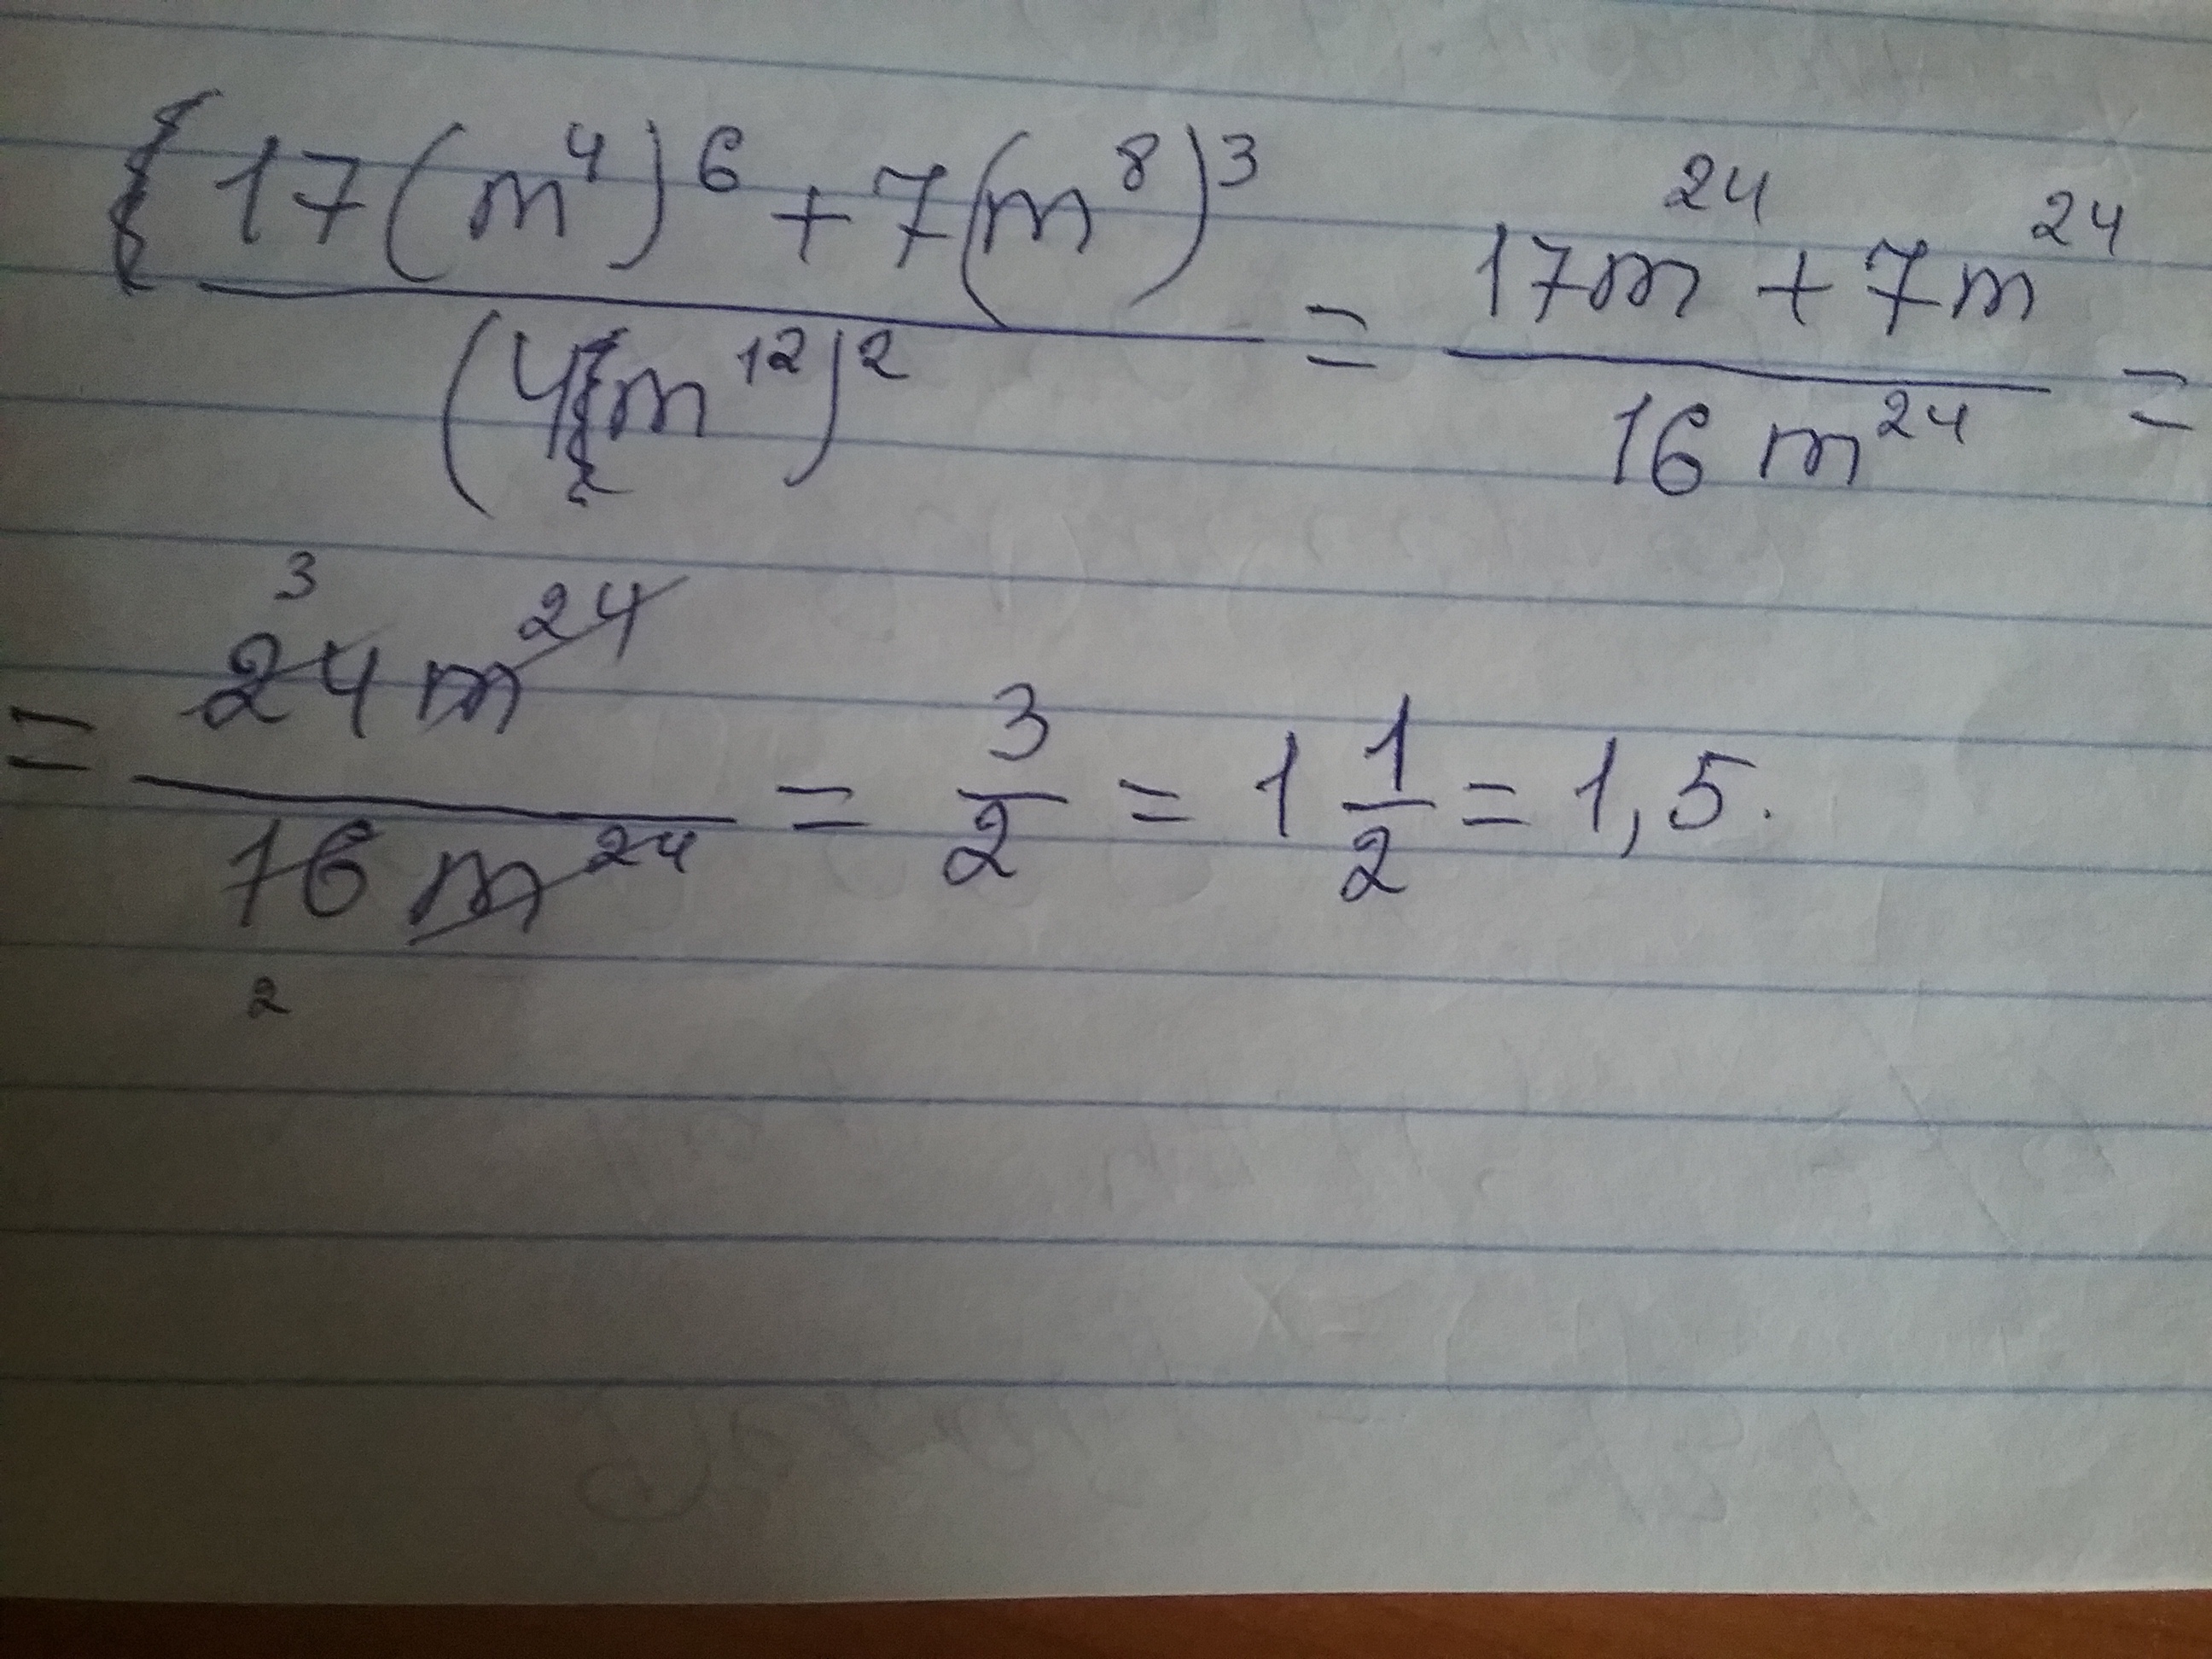 17(m⁴)⁶ + 7(m⁸)³ / (4m¹²)² = 17m²⁴ + 7m²⁴ / 16m²⁴ =
= 24m²⁴ / 16m²⁴ = 3/2 = 1 1/2 = 1,5.